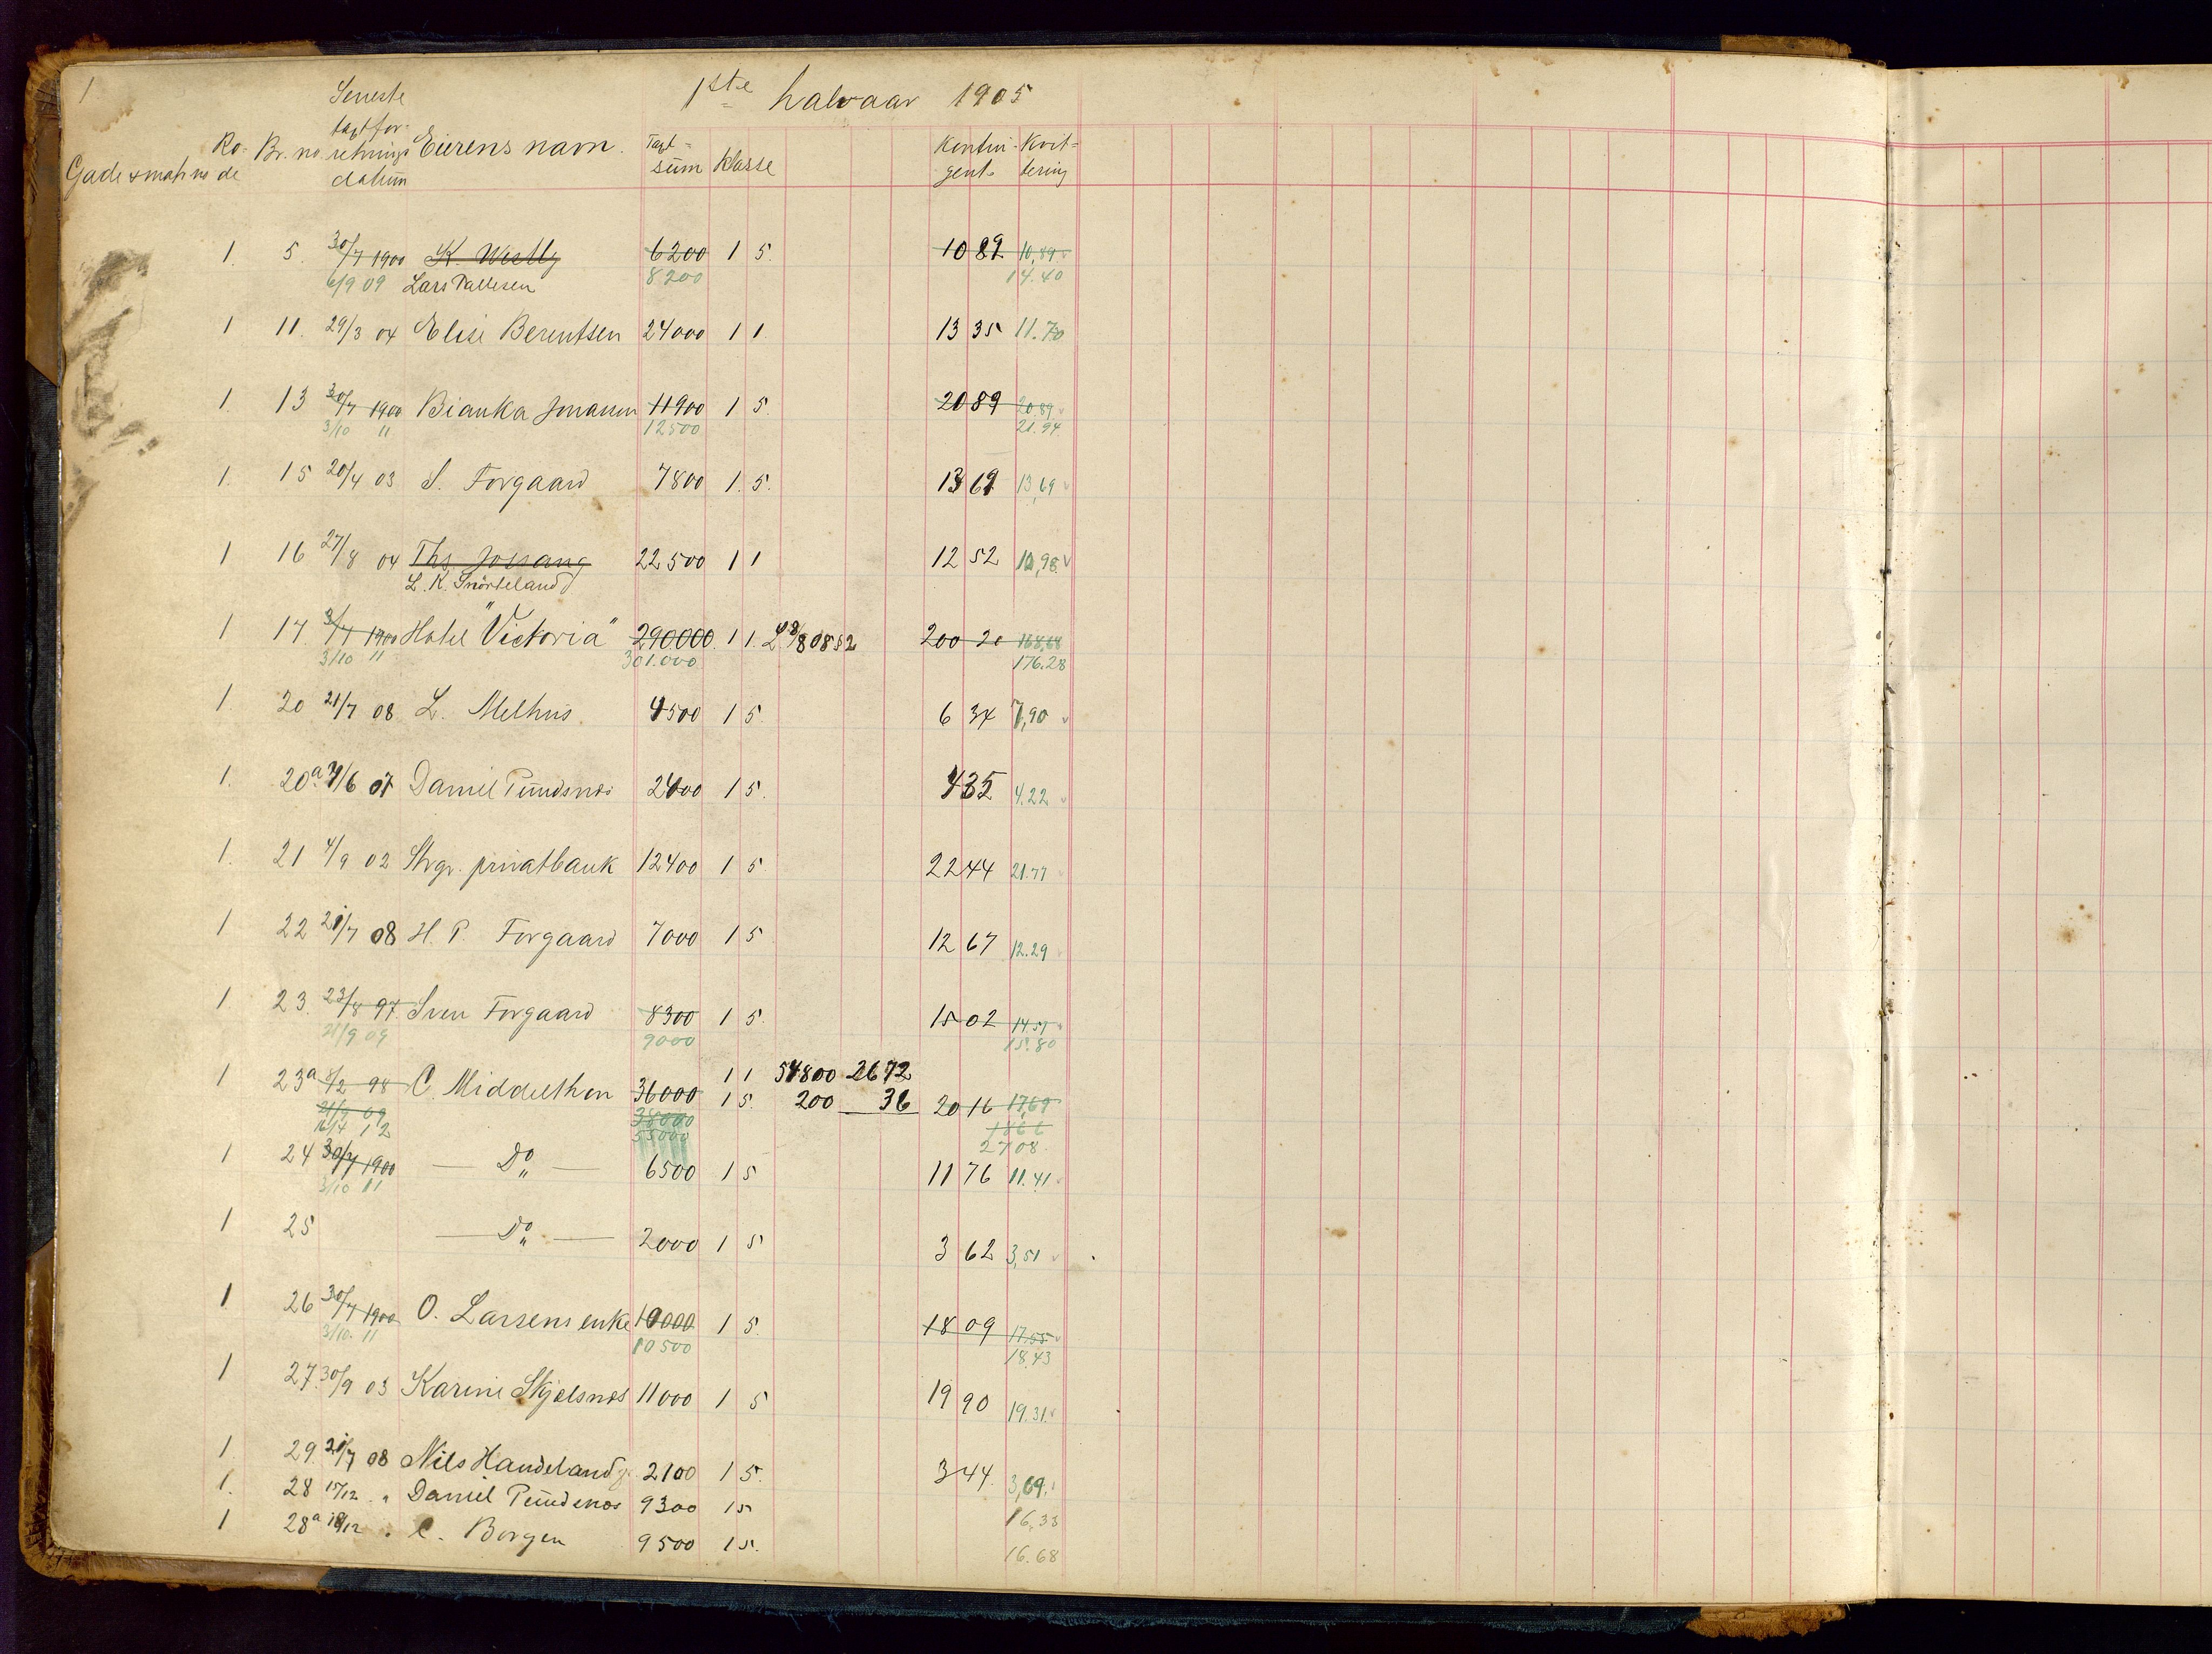 1
1ste halvaar 1905
Gade & matr no Ro-de Br. no Seneste taxtforretnings datum Eierens navn. Taxt-sum Klasse Kontin-gent. Kvit-tering
1. 5. 30/7 1900 K. Westly 6200 1 5. 10 89 10,89
6/9 09 Lars Pallesen 8200 14.40
1 11. 29/3 04 Elise Berentsen 24000 1 1. 13 35 11.70
1. 13 30/7 1900 Bianka Jonassen 11900 1 5. 20 89 20,89
3/10 11 12500 21.94
1. 15 20/4 03 S. Torgaard 7800 1. 5. 13 69 13,69
1 16 27/8 04 Ths. Jossang 22500 1 1 12 52 10,98
L. K. Snörteland
1 17. 3/7 1900 Hotel "Victoria" 290000. 1 1. 200 20 168,64
3/10 11 301.000 176.28
1 20 21/7 08 L. Melhus 4500 1 5. 6 34 7,90
1. 20a 7/6 07 Daniel Pundsnes 2400 1 5. 4 35 4.22
1. 21 4/9 02 Stvgr. privatbank 12400 1 5. 22 44 21.77
1 22 21/7 08 H. P. Torgaard 7000 1 5 12 67 12.29
1 23. 23/8 97. Sven Torgaard 8300 1 5. 15 02 14.57
21/9 09 9000 15.80
1 23a 8/2 98 C. Middelthon 36000 1 1 54800 2672
1 5. 200 36 20 16 17,69
21/9 09 38000 1866
16/4 12 55000 27 08
1 24 30/7 1900 — Do — 6500 1 5 11 76 11.41
3/10 11
1 25 — Do — 2000 1 5 3 62 3,51
1 26 30/7 1900 O. Larsens enke 10000 1 5. 18 09 17.55
3/10. 11 10500 18.43
1 27. 30/9 03 Karine Skjelsnes 11000 1 5 19 90 19.31
1 29. 21/7 08 Nils Handeland 2100 1 5. 3 44. 3,69
1. 28 15/12 " Daniel Pundsnes 9300 1 5 16,33
1 28a 18/12 " C. Borgen 9500 1 5. 16.68